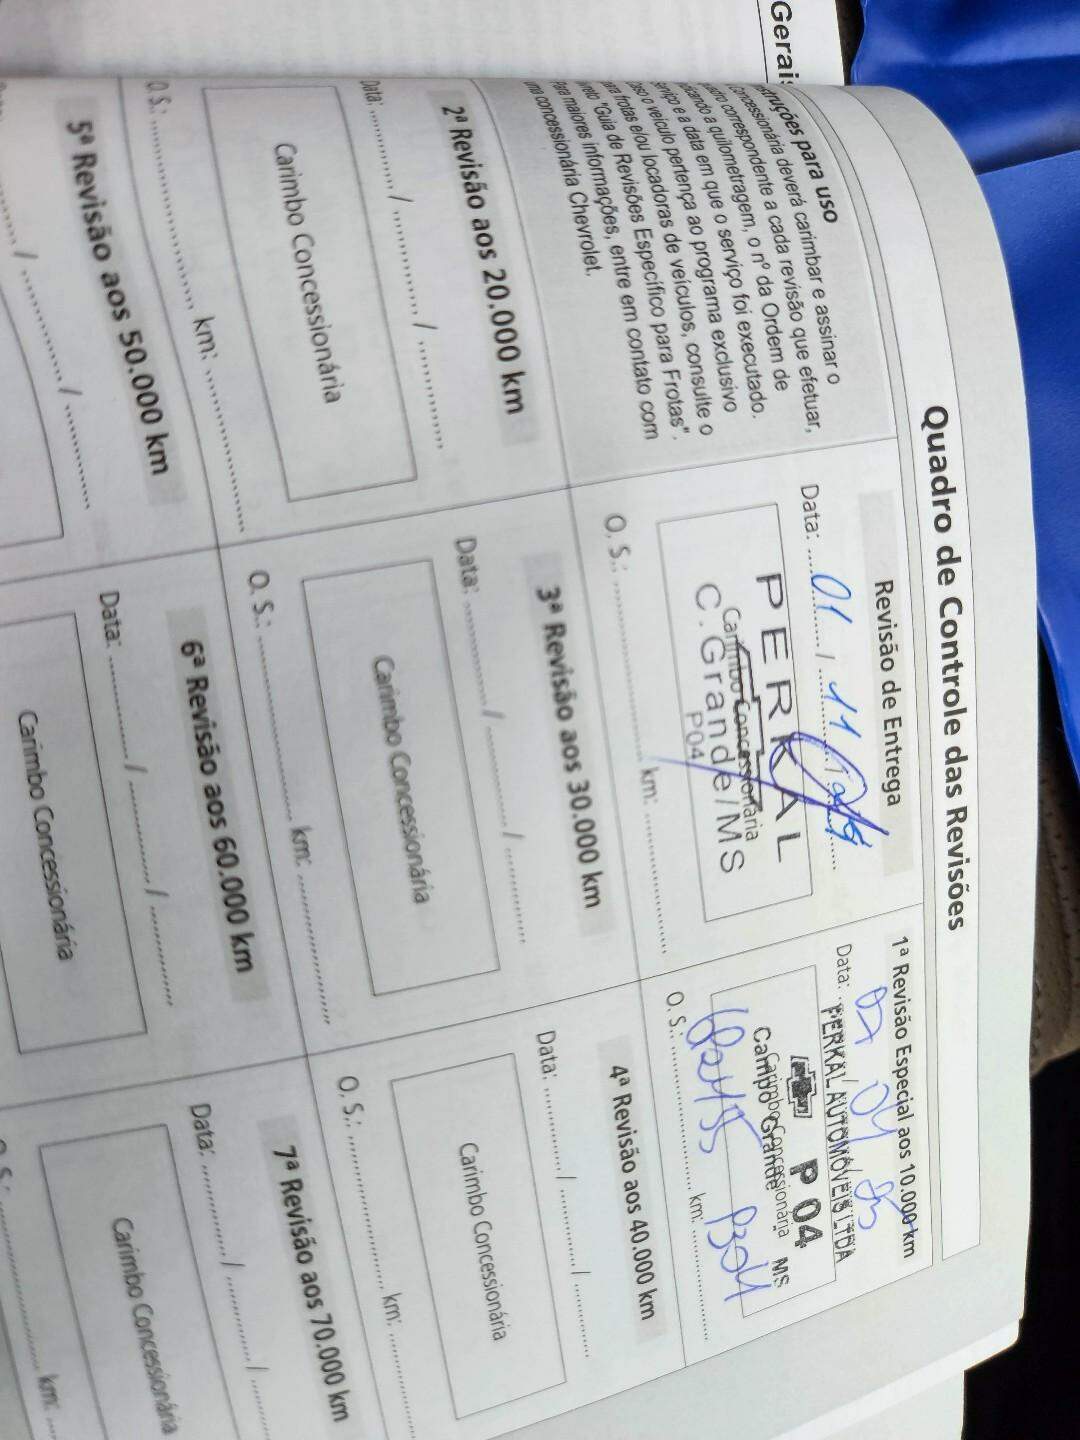 Gerais
Quadro de Controle das Revisões
Instruções para uso
Concessionária deverá carimbar e assinar o
quadro correspondente a cada revisão que efetuar,
indicando a quilometragem, o nº da Ordem de
Serviço e a data em que o serviço foi executado.
Caso o veículo pertença ao programa exclusivo
para frotas e/ou locadoras de veículos, consulte o
"Guia de Revisões Específico para Frotas".
Para maiores informações, entre em contato com
uma concessionária Chevrolet.
Revisão de Entrega
Data: 01 / 11 /
Carimbo Concessionária
PERKAL
C. Grande/MS
P04
O. S.: km:
1ª Revisão Especial aos 10.000 km
Data:
PERKAL AUTOMÓVEIS LTDA
P 04
Carimbo Concessionária
Campo Grande MS
O. S.: km:
2ª Revisão aos 20.000 km
Data: / /
Carimbo Concessionária
O. S.: km:
3ª Revisão aos 30.000 km
Data: / /
Carimbo Concessionária
O. S.: km:
4ª Revisão aos 40.000 km
Data: / /
Carimbo Concessionária
O. S.: km:
5ª Revisão aos 50.000 km
/ /
6ª Revisão aos 60.000 km
Data: / /
Carimbo Concessionária
7ª Revisão aos 70.000 km
Data: / /
Carimbo Concessionária
O. S.: km: